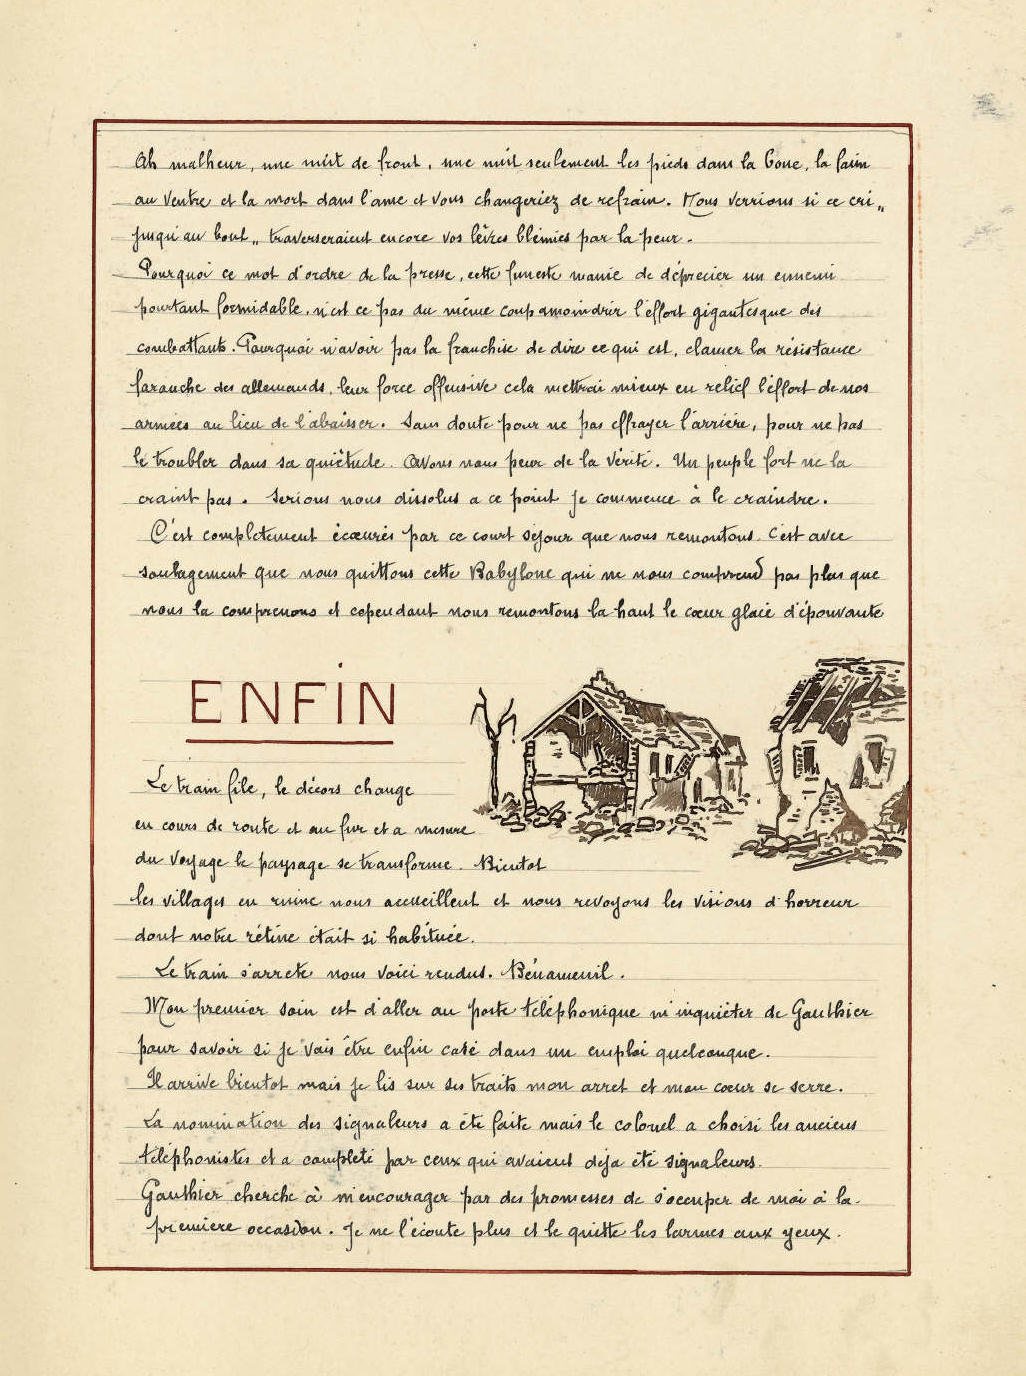 Ah malheur, une nuit de front, une nuit seulement les pieds dans la boue, la faim
au ventre et la mort dans l'ame et vous changeriez de refrain. Nous verrions si ce cri „
jusqu'au bout „ traverseraient encore vos lèvres blêmies par la peur.
Pourquoi ce mot d'ordre de la presse, cette funeste manie de déprecier un ennemi
pourtant formidable, n'est ce pas du même coup amoindrir l'effort gigantesque des
combattants. Pourquoi n'avoir pas la franchise de dire ce qui est, clamer la résistance
farouche des allemands, leur force offensive cela mettrai mieux en relief l'éffort de nos
armées au lieu de l'abaisser. Sans doute pour ne pas effrayer l'arrière, pour ne pas
le troubler dans sa quiètude. Avons nous peur de la vérité. Un peuple fort ne la
craint pas. Serions nous dissolus a ce point je commence à le craindre.
C'est complètement écœurés par ce court séjour que nous remontons. C'est avec
soulagement que nous quittons cette Babylone qui ne nous comprend pas plus que
nous la comprenons et cependant nous remontons la haut le cœur glacé d'épouvante
ENFIN
Le train file, le décors change
en cours de route et au fur et a mesure
du voyage le paysage se transforme. Bientot
les villages en ruine nous accueillent et nous revoyons les visions d'horreur
dont notre rétine était si habituée.
Le train s'arrete nous voici rendus. Bénameuil.
Mon premier soin est d'aller au poste téléphonique m'inquiéter de Gauthier
pour savoir si je vais être enfin casé dans un emploi quelconque.
Il arrive bientot mais je lis sur ses traits mon arret et mon cœur se serre.
La nomination des signaleurs a été faite mais le colonel a choisi les anciens
téléphonistes et a completé par ceux qui avaient déja été signaleurs.
Gauthier cherche à m'encourager par des promesses de s'occuper de moi à la
première occasion. Je ne l'écoute plus et le quitte les larmes aux yeux.